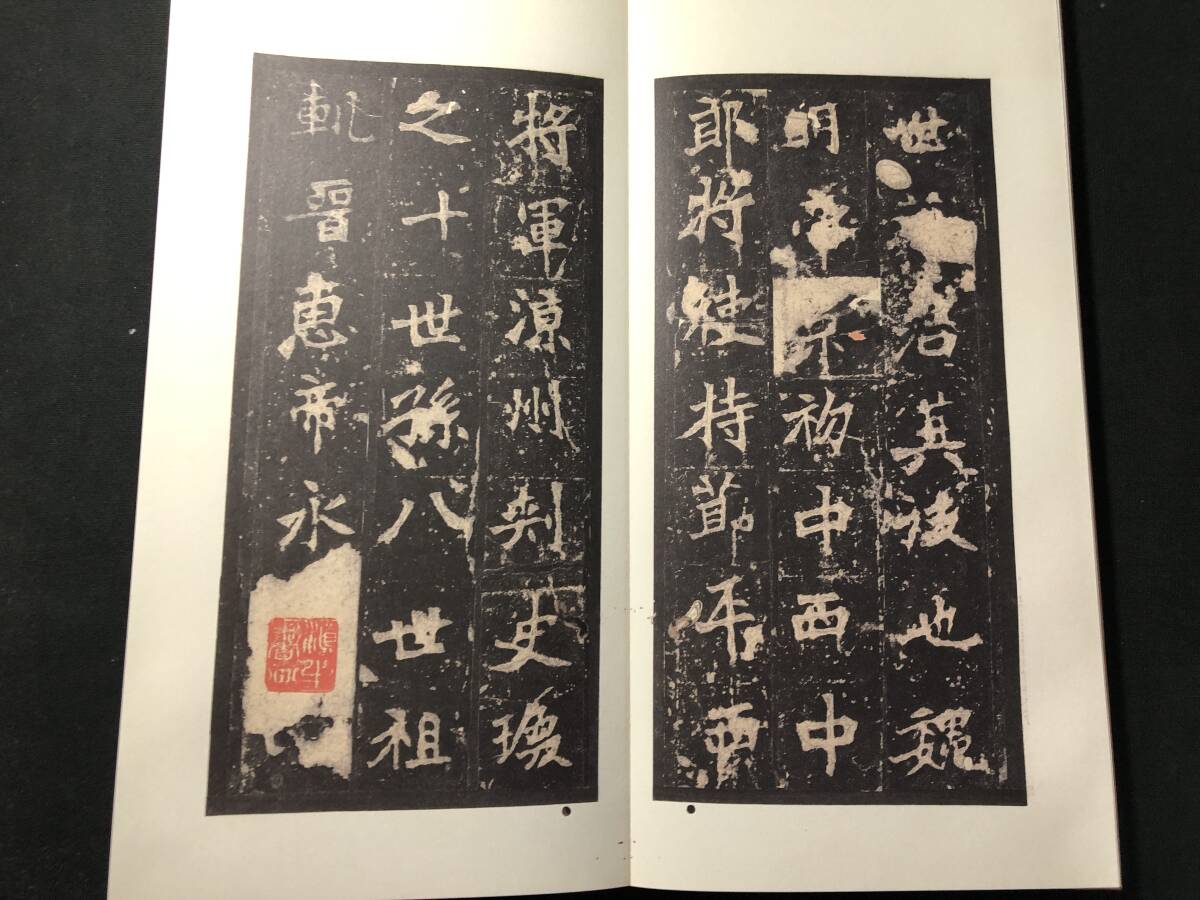 世君其後也魏
明帝初中西中
郎將使持節平西
將軍涼州刺史瑍
之十世孫八世祖
軌晉惠帝永